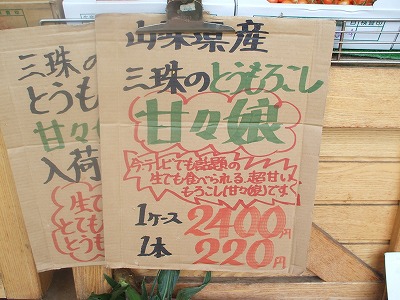 山梨県産
三珠のとうもろこし
甘々娘
今テレビでも話題の
生でも食べられる、超甘い
もろこし(甘々娘)です。
1ケース 2400円
1本 220円
三珠の
とうも
甘々
入荷
生で
とても
とうも